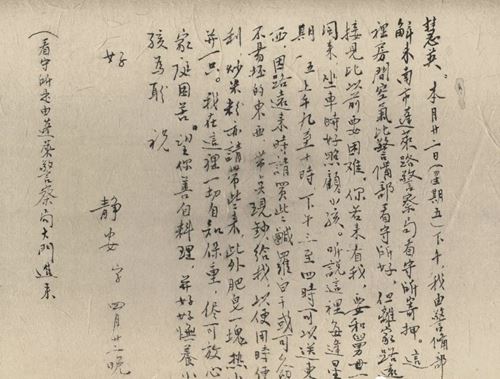 慧英。本月廿二日(星期五)下午,我由警備部
解来南市蓬萊路警察局看守所寄押。這
裡房間空氣比警備部看守所好,但離家路遠
接見比以前更困难,你若来看我,要和舅母一
同来,坐車時好照顧小孩。听說這裡每逢星
期一、五上午九至十時下午三至四時可以送東
西,因路遠来時請買些鹹羅白干或可久的
不易坯的東西 現鈔給我,以便用時便
利,炒米粉亦請帶些来,此外肥皂一塊热小
并一只。我在這裡一切自知保重,侭可放心
家庭困苦。望你善自料理,并好好撫養小
孩為盼 祝
好
靜安 字 四月廿二晚
(看守所是由蓬萊警察局大門進来